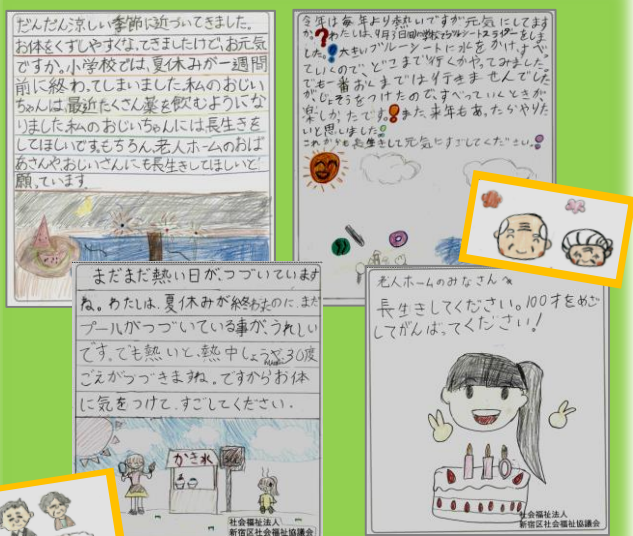 だんだん涼しい季節に近づいてきました。
お体をくずしやすくなってきましたけど、お元気
ですか。小学校では、夏休みが一週間
前に終わってしまいました。私のおじい
ちゃんは、最近たくさん薬を飲むようにな
りました。私のおじいちゃんには長生きを
してほしいです。もちろん、老人ホームのおば
あさんや、おじいさんにも長生きしてほしいと
願っています
今年は毎年より熱いですが元気にしてます
か?わたしは、9月3日に学校でブルーシートスライダーをしま
した。大きいブルーシートに水をかけ、すべ
ていくので、どこまで行くかやってみました。
でも一番おくまでは行きませんでした
が、じょそうをつけたので、すべっていくときが
楽しかったです。また、来年もあったらやりた
いと思いました。
これからも長生きして元気にすごしてください。
まだまだ熱い日が、つづいています
ね。わたしは、夏休みが終わったのに、まだ
プールがつづいている事が、うれしい
です。でも熱いと、熱中しょうや30度
ごえがつづきますね。ですからお体
に気をつけて、すごしてください.
かき氷
社会福祉法人
新宿区社会福祉協議会
老人ホームのみなさんへ
長生きしてください。100才をめざ
してがんばってください!
110
社会福祉法人
新宿区社会福祉協議会